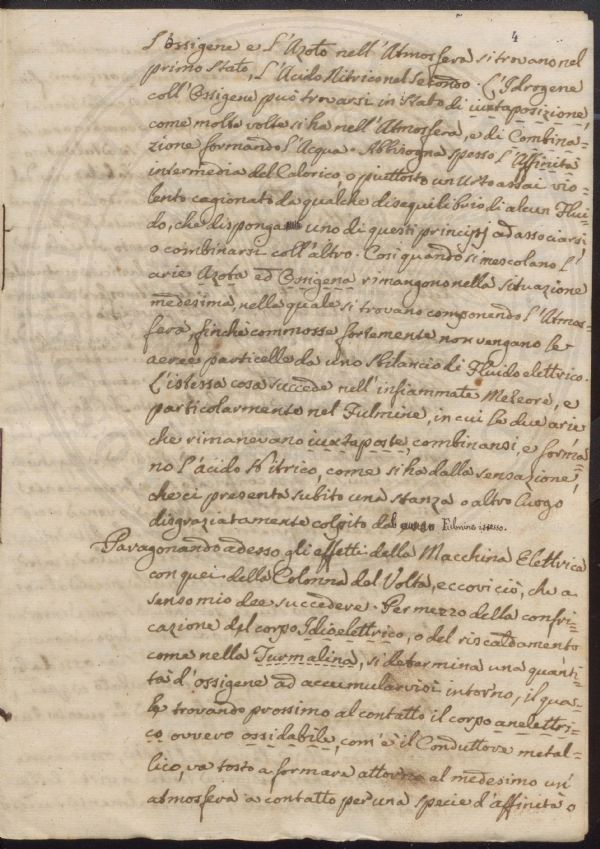 4
L'Ossigene e l'Azoto nell'Atmosfera si trovano nel
primo stato, l'Acido Nitrico nel Secondo. L'Idrogene
coll'Ossigene può trovarsi in stato di iuxtaposizione,
come molte volte si ha nell'Atmosfera, e di Combina=
zione formando l'Acqua. Abbisogna spesso l'Affinità
intermedia del Calorico o piuttosto un Urto assai vio=
lento cagionato da qualche disequilibrio di alcun Flui=
do, che disponga uno di questi principj ad associarsi
o combinarsi coll'altro. Così quando si mescolano l'
arie Azota ed Ossigena rimangono nella situazione
medesima, nella quale si trovano componendo l'Atmos=
fera, finche commosse fortemente non vengano le
aeree particelle da uno sbilancio di Fluido elettrico.
L'istessa cosa succede nell'infiammate Meteore, e
particolarmente nel Fulmine, in cui le due arie
che rimanevano iuxtaposte, combinansi, e forma=
no l'ácido Nitrico, come si ha dalla sensazione,
che ci presenta subito una stanza o altro luogo
disgraziatamente colpito dal Fulmine istesso.
Paragonando adesso gli effetti della Macchina Elettrica
con quei della Colonna del Volta, eccovi ciò, che a
senso mio dee succedere. Per mezzo della confri=
cazione del corpo Idioelettrico, o del riscaldamento
come nella Turmalina, si determina una quanti=
tà d'ossigene ad accumularvisi intorno, il qua=
le trovando prossimo al contatto il corpo anelettri=
co ovvero ossidabile, com'è il Conduttore metal=
lico, va tosto a formare attorno al medesimo un'
atmosfera a contatto per una specie d'affinità o